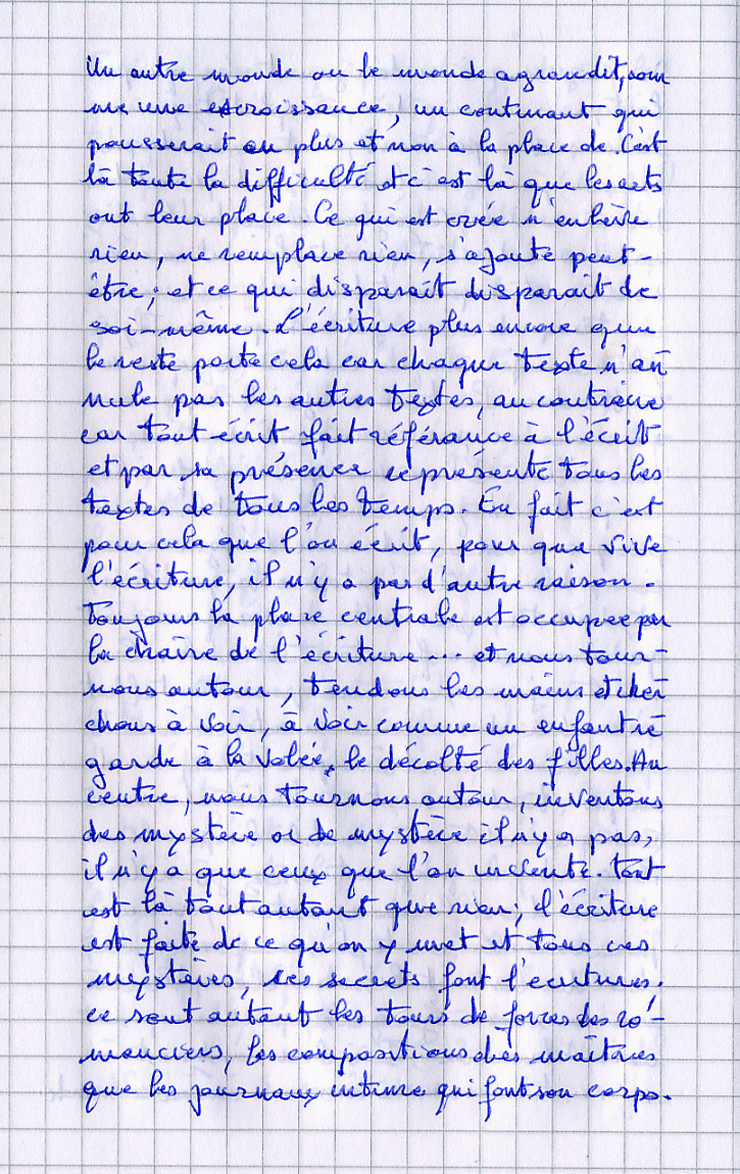 Un autre monde ou le monde agrandit, com
me une excroissance, un continuant qui
pousserait en plus et non à la place de. C'est
là toute la difficulté et c'est là que les arts
ont leur place. Ce qui est créé n'enlève
rien, ne remplace rien, s'ajoute peut-
être; et ce qui disparaît disparaît de
soi-même. L'écriture plus encore que
le reste porte cela car chaque texte n'an
nule pas les autres textes, au contraire
car tout écrit fait référance à l'écrit
et par sa présence représente tous les
textes de tous les temps. En fait c'est
pour cela que l'on écrit, pour que vive
l'écriture, il n'y a pas d'autre raison.
Toujours la place centrale est occupée par
la chaire de l'écriture... et nous tour-
nous autour, tendons les mains et cher
chons à voir, à voir comme un enfant re
garde à la volée, le décolté des filles. Au
centre, nous tournons autour, inventons
des mystère or de mystère il n'y a pas,
il n'y a que ceux que l'on invente. Tout
est là tout autant que rien; l'écriture
est faite de ce qu'on y met et tous ces
mystères, ces secrets font l'écritures,
ce sont autant les tours de forces des ro-
manciers, les compositions des maîtres
que les journaux intime qui font son corps.